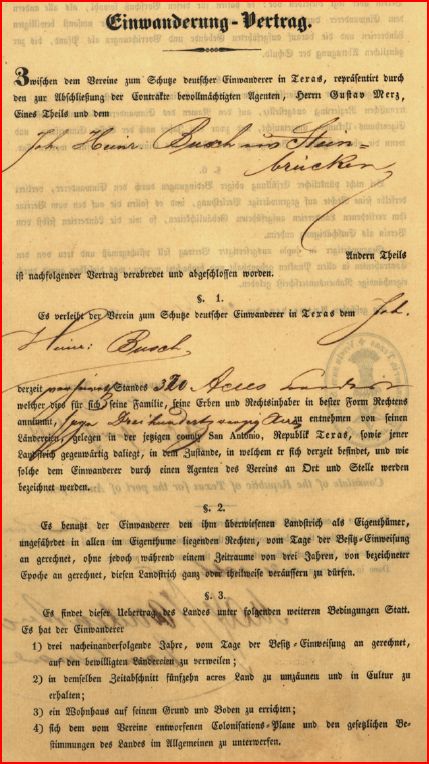 Einwanderung-Vertrag.
Zwischen dem Vereine zum Schutze deutscher Einwanderer in Texas, repräsentirt durch
den zur Abschließung der Contrakte bevollmächtigten Agenten, Herrn Gustav Merz,
Eines Theils und dem
Joh. Heinr. Busch aus Stein-
brücken
Andern Theils
ist nachfolgender Vertrag verabredet und abgeschlossen worden.
§. 1.
Es verleiht der Verein zum Schutze deutscher Einwanderer in Texas dem Joh.
Heinr: Busch
derzeit Standes 320 Acres
welcher dies für sich, seine Familie, seine Erben und Rechtsinhaber in bester Form Rechtens
annimmt, zu entnehmen von seinen
Ländereien, gelegen in der jetzigen county San Antonio, Republik Texas, sowie jener
Landstrich gegenwärtig daliegt, in dem Zustande, in welchem er sich derzeit befindet, und wie
solche dem Einwanderer durch einen Agenten des Vereins an Ort und Stelle werden
bezeichnet werden.
§. 2.
Es benutzt der Einwanderer den ihm überwiesenen Landstrich als Eigenthümer,
ungefährdet in allen im Eigenthume liegenden Rechten, vom Tage der Besitz-Einweisung
an gerechnet, ohne jedoch während einem Zeitraume von drei Jahren, von bezeichneter
Epoche an gerechnet, diesen Landstrich ganz oder theilweise veräussern zu dürfen.
§. 3.
Es findet dieser Uebertrag des Landes unter folgenden weiterem Bedingungen Statt.
Es hat der Einwanderer
1) drei nacheinanderfolgende Jahre, vom Tage der Besitz-Einweisung an gerechnet,
auf den bewilligten Ländereien zu verweilen;
2) in demselben Zeitabschnitt fünfzehn acres Land zu umzäunen und in Cultur zu
erhalten;
3) ein Wohnhaus auf seinem Grund und Boden zu errichten;
4) sich dem vom Vereine entworfenen Colonisations-Plane und den gesetzlichen Be-
stimmungen des Landes im Allgemeinen zu unterwerfen.